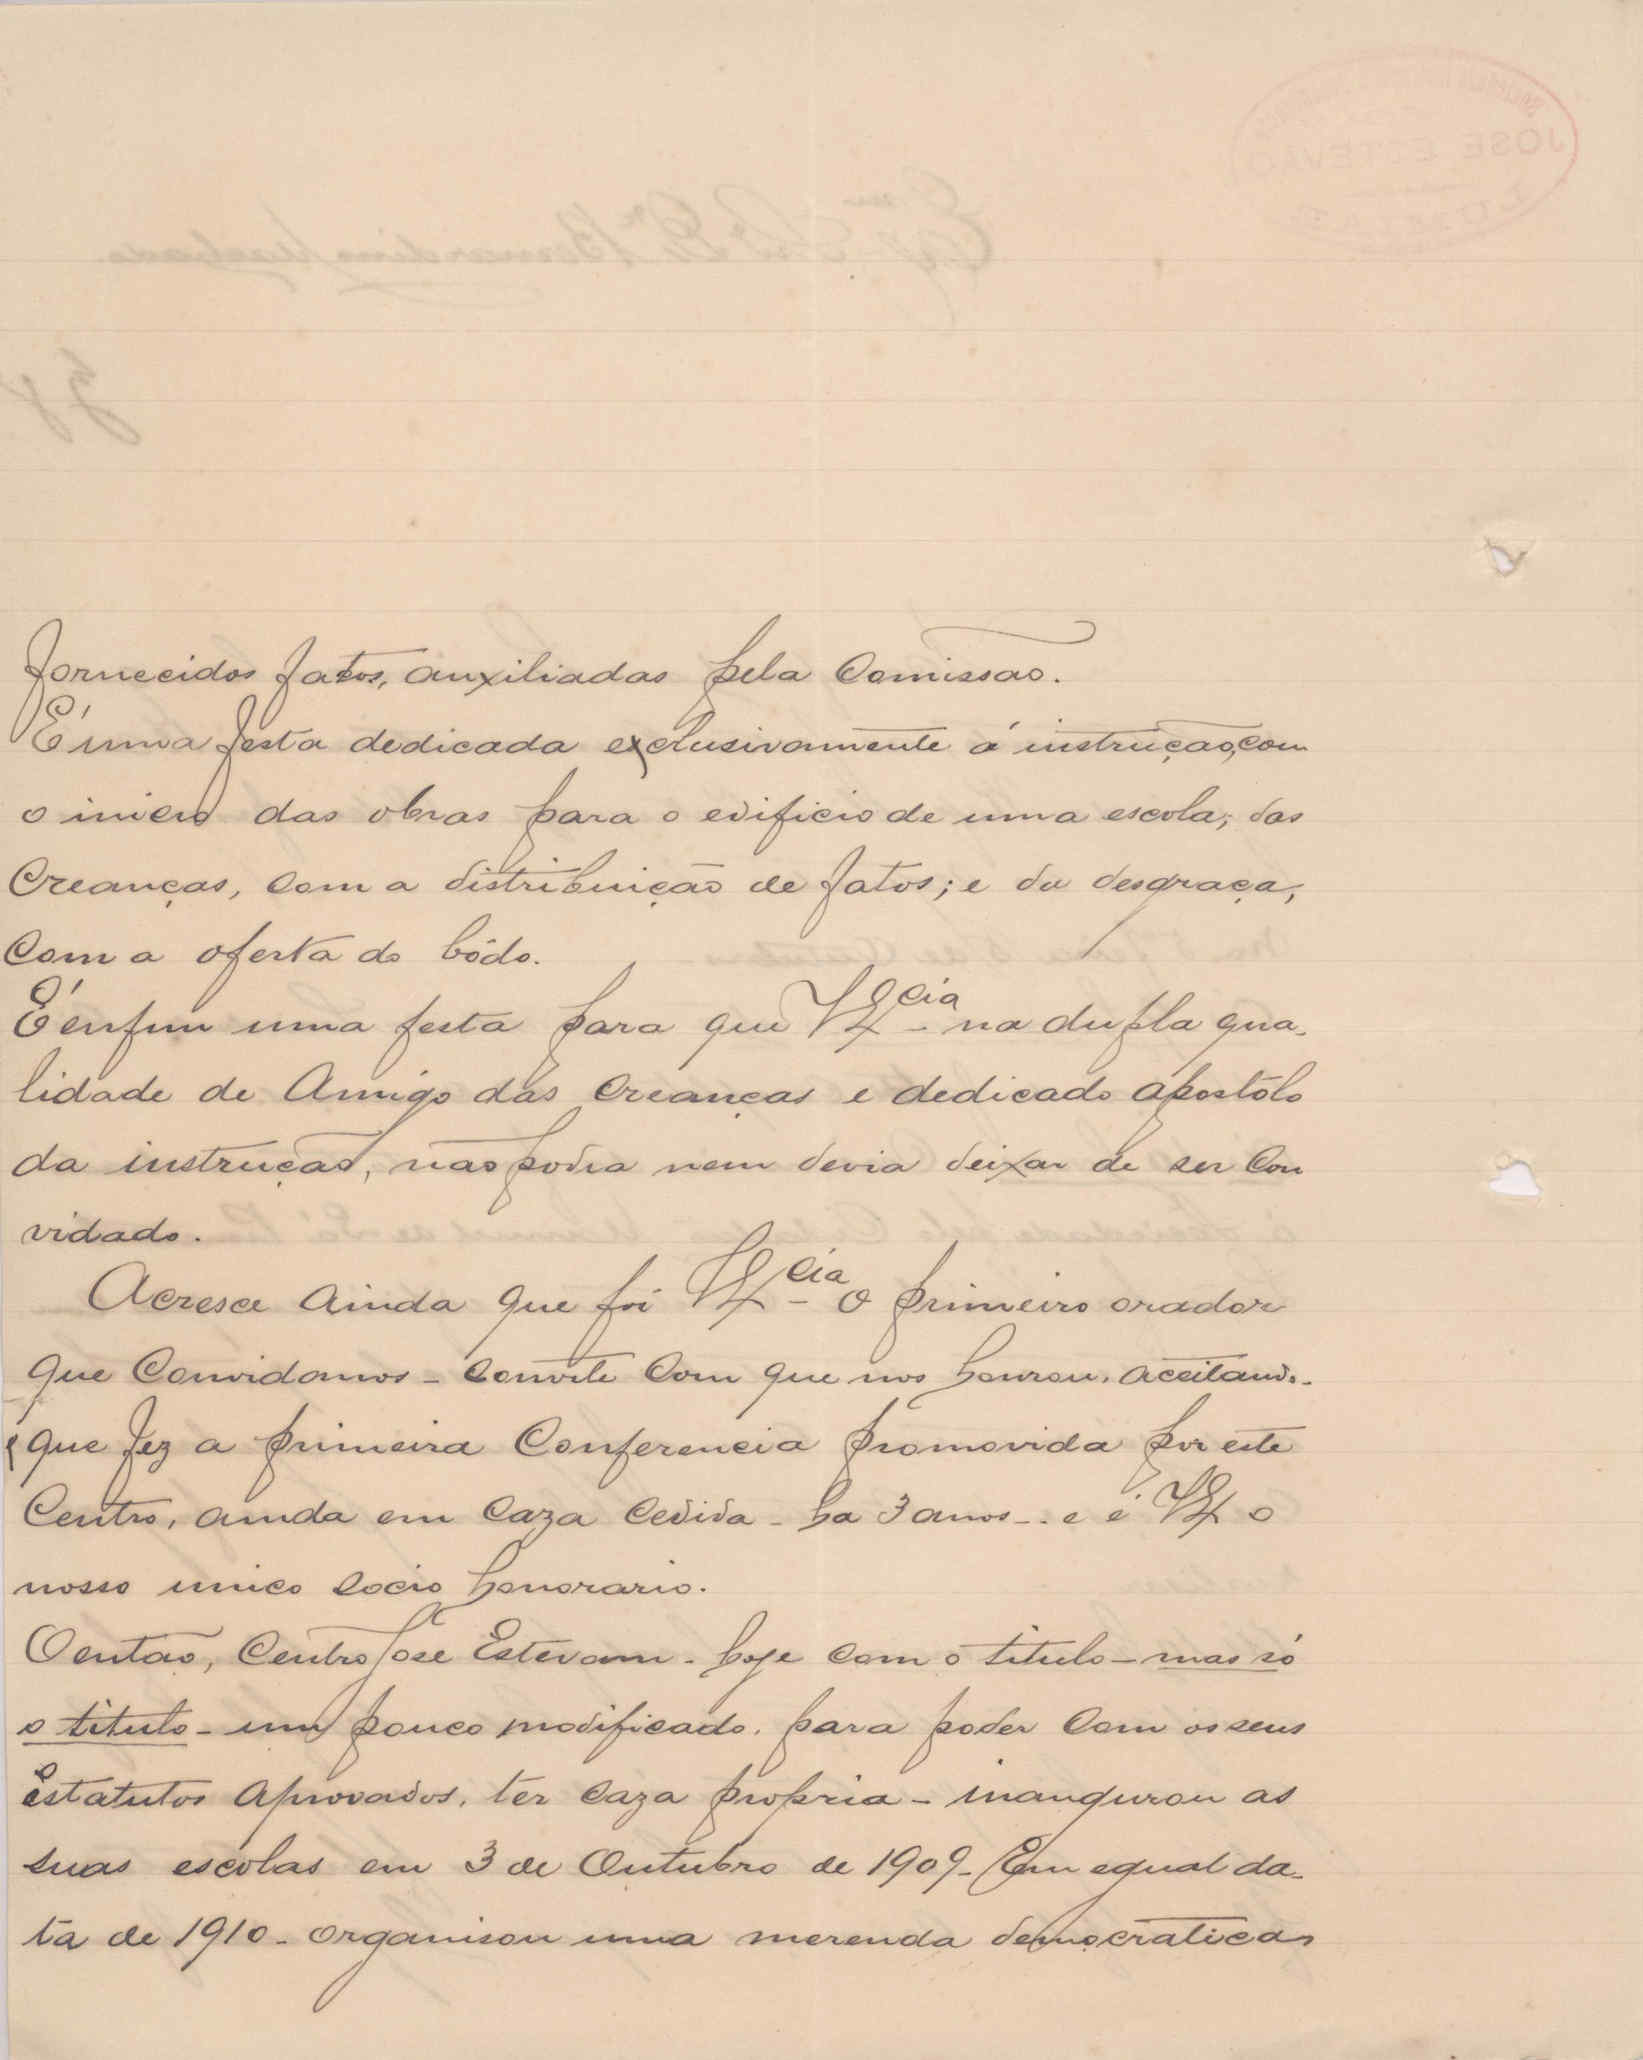 fornecidos fatos, auxiliadas pela Comissão.
É uma festa dedicada exclusivamente á instrução, com
o inicio das obras para o edificio de uma escola; das
Creanças, com a distribuição de fatos; e da desgraça,
com a oferta do bôdo.
É enfim uma festa para que V. Ex.cia na dupla qua-
lidade de Amigo das Creanças e dedicado apostolo
da instrução, não podia nem devia deixar de ser con
vidado.
Acresce ainda que foi V. Ex.cia o primeiro orador
que convidamos - convite com que nos honrou, aceitando-
e que fez a primeira Conferencia promovida por este
Centro, ainda em caza cedida - ha 3 anos -. e é V. Ex. o
nosso unico socio honorario.
O então, Centro José Estevam - hoje com o titulo - mas só
o titulo - um pouco modificado, para poder com os seus
Estatutos aprovados, ter caza propria - inaugurou as
suas escolas em 3 de Outubro de 1909 - Em egual da-
ta de 1910 - organisou uma merenda democratica